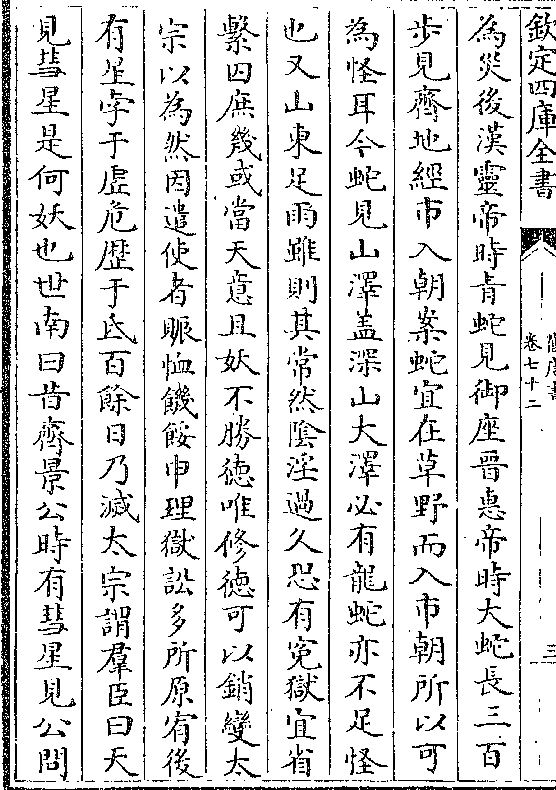 欽定四庫全書
舊唐書
卷七十二
三
為災後漢靈帝時青蛇見御座晉惠帝時大蛇長三百
步見齊地經市入朝案蛇宜在草野而入市朝所以可
為怪耳今蛇見山澤盖深山大澤必有龍蛇亦不足怪
也又山東足雨雖則其常然陰淫過久恐有冤獄宜省
繫囚庶幾或當天意且妖不勝徳唯修徳可以銷變太
宗以為然因遣使者賑恤饑餒申理獄訟多所原宥後
有星孛于虚危歴于氐百餘日乃滅太宗謂羣臣曰天
見彗星是何妖也世南曰昔齊景公時有彗星見公問